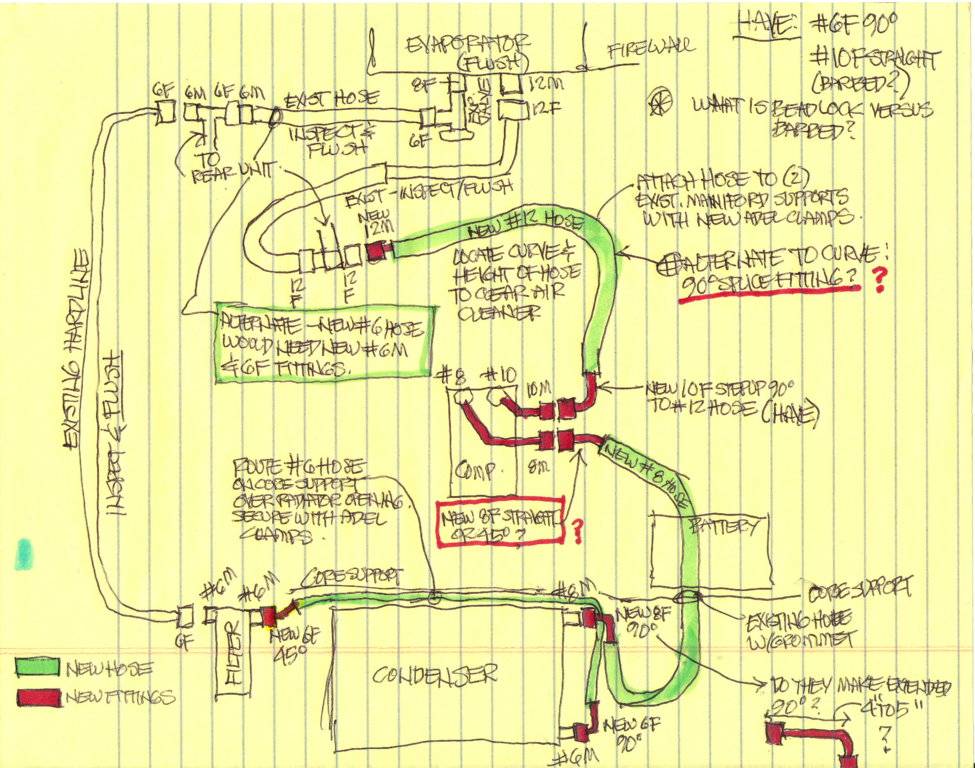 HAVE: #6F 90°
#10F STRAIGHT
(BARBED?)
WHAT IS BEADLOCK VERSUS
BARBED?
EVAPORATOR
(FLUSH)
FIREWALL
8F
12M
12F
6F
6M
6F
6M
EXIST HOSE
INSPECT &
FLUSH
6F
TO
REAR UNIT
EXIST - INSPECT/FLUSH
NEW
12M
NEW #12 HOSE
12
F
12
F
ATTACH HOSE TO (2)
EXIST. MANIFORD SUPPORTS
WITH NEW ADEL CLAMPS.
LOCATE CURVE &
HEIGHT OF HOSE
TO CLEAR AIR
CLEANER
ALTERNATE TO CURVE:
90° SPLICE FITTING? ?
ALTERNATE - NEW #6 HOSE
WOULD NEED NEW #6M
& 6F FITTINGS.
EXISTING HARDLINE
INSPECT & FLUSH
#8
#10
10M
8M
COMP.
NEW 10F STEPUP 90°
TO #12 HOSE (HAVE)
NEW #8 HOSE
NEW 8F STRAIGHT
OR 45°?
?
ROUTE #6 HOSE
ON CORE SUPPORT
OVER RADIATOR OPENING.
SECURE WITH ADEL
CLAMPS.
BATTERY
CORE SUPPORT
CORE SUPPORT
#6M
#6M
#8M
6F
FILTER
NEW 6F
45°
NEW 8F
90°
EXISTING HOLE
W/GROMMET
CONDENSER
NEW HOSE
NEW FITTINGS
NEW 6F
90°
#6M
DO THEY MAKE EXTENDED
90°?
4" TO 5"
?